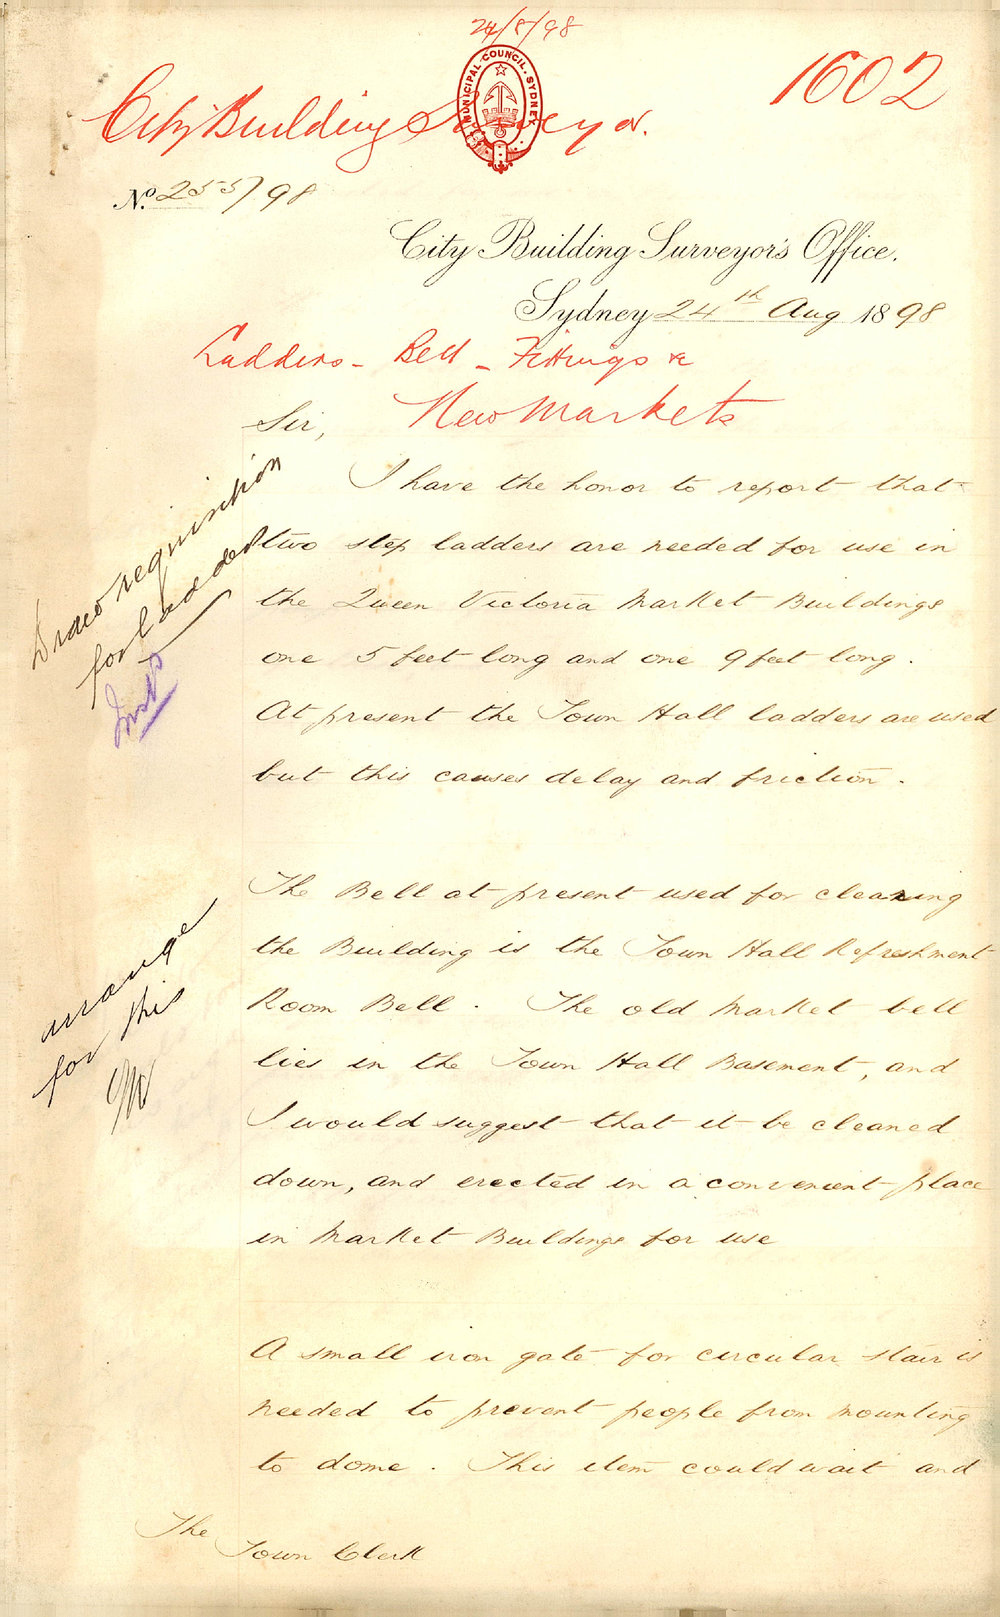 24/8/98
1602
City Building Surveyor.
MUNICIPAL COUNCIL. SYDNEY
No. 255/98
City Building Surveyor's Office.
Sydney 24th Aug 1898
Ladders - Bell - Fittings &
New Markets
Sir,
I have the honor to report that
two step ladders are needed for use in
the Queen Victoria Market Buildings
one 5 feet long and one 9 feet long.
At present the Town Hall ladders are used
but this causes delay and friction.
Draw requisition
for ladders
The Bell at present used for clearing
the Building is the Town Hall Refreshment
Room Bell. The old Market bell
lies in the Town Hall Basement, and
I would suggest that it be cleaned
down, and erected in a convenient place
in Market Buildings for use
arrange
for this
A small iron gate for circular stair is
needed to prevent people from mounting
to dome. This item could wait and
The
Town Clerk